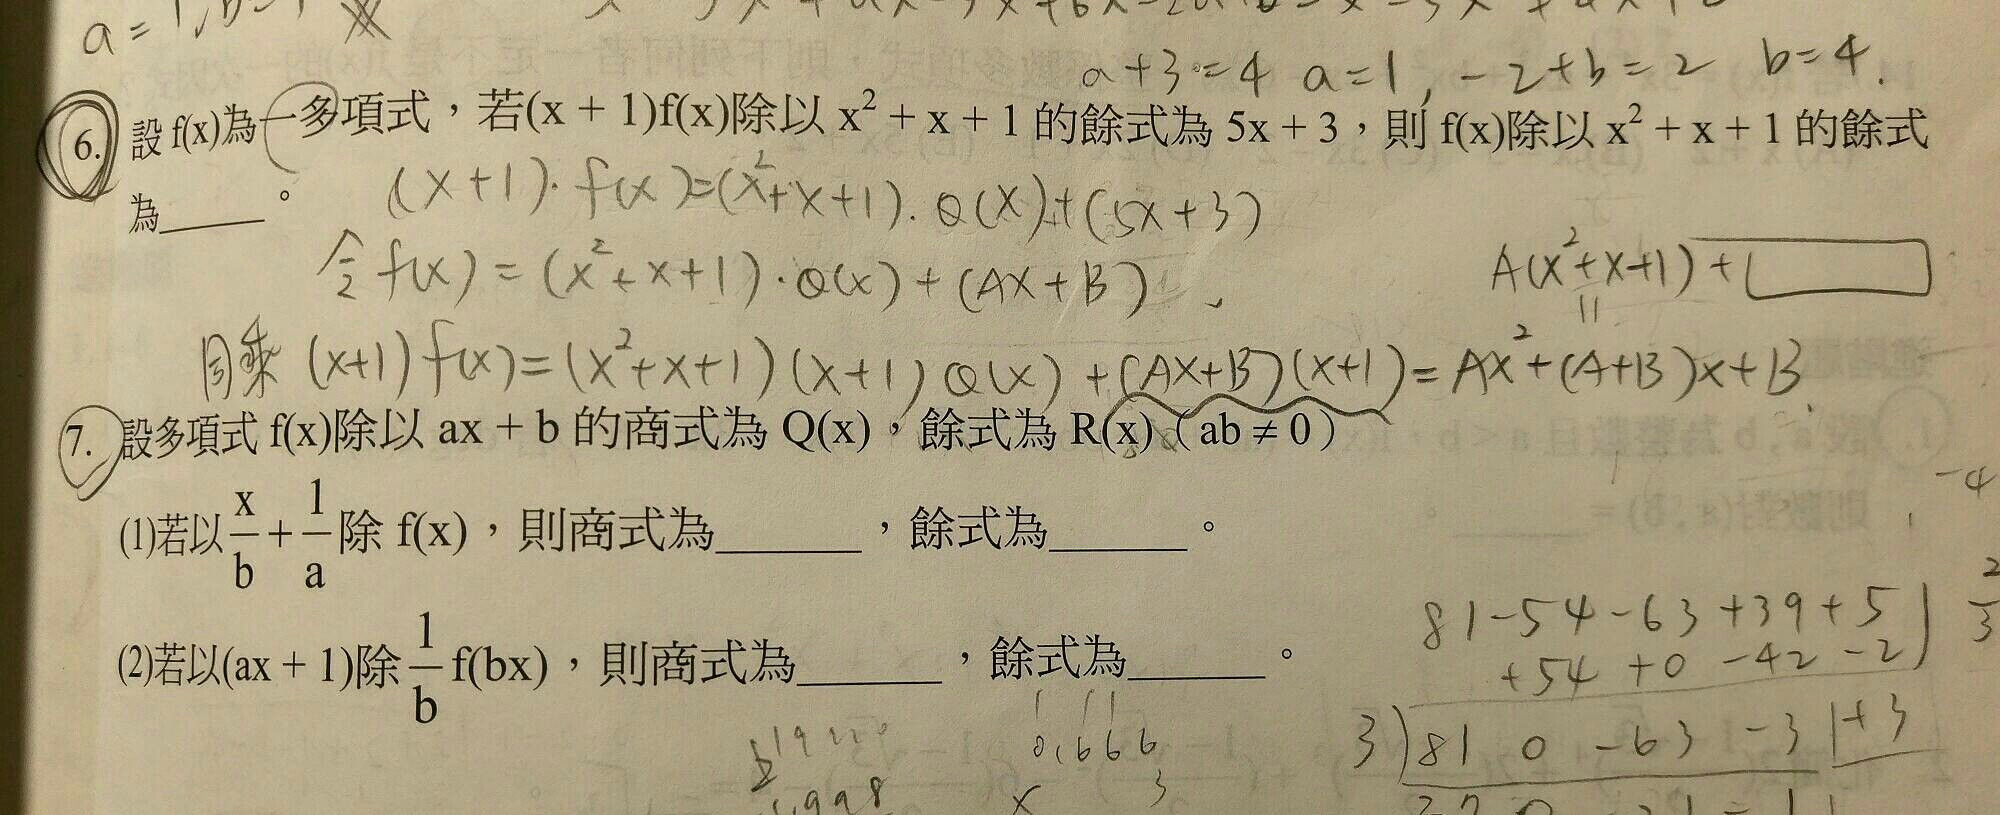 a+3=4 a=1, -2+b=2 b=4.
6. 設 f(x)為一多項式，若(x + 1)f(x)除以 x² + x + 1 的餘式為 5x + 3，則 f(x)除以 x² + x + 1 的餘式
為______。
(x+1)·f(x)=(x²+x+1)·Q(x)+(5x+3)
令f(x)=(x²+x+1)·Q(x)+(Ax+B)
A(x²+x+1)+
同乘 (x+1)f(x)=(x²+x+1)(x+1)Q(x)+(Ax+B)(x+1)=Ax²+(A+B)x+B
7. 設多項式 f(x)除以 ax + b 的商式為 Q(x)，餘式為 R(x)（ab ≠ 0）
(1)若以 x/b + 1/a 除 f(x)，則商式為______，餘式為______。
(2)若以(ax + 1)除 1/b f(bx)，則商式為______，餘式為______。
-4
81-54-63+39+5 2/3
+54+0-42-2
3)81 0 -63 -3 +3
0.666
3